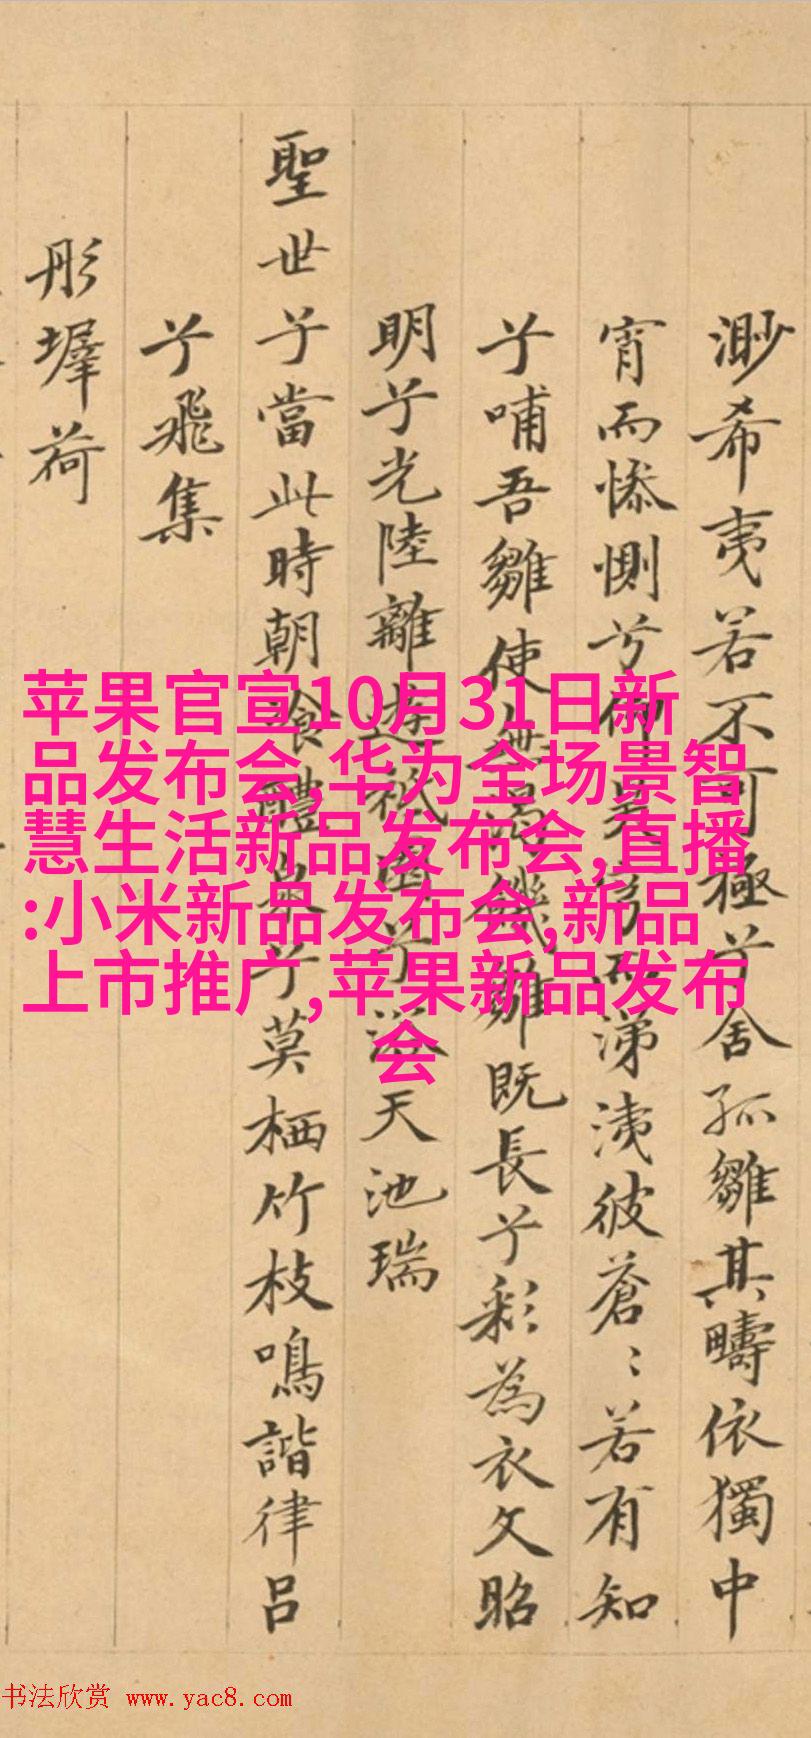 渺希夷若不可極兮舍孤雛其疇依獨中
宵而慘惻兮仰昊穹而涕洟彼蒼〻若有知
兮哺吾雛使無渴饑雛既長兮彩為衣文昭
明兮光陸離遊祇園兮浴天池瑞
聖世兮當此時朝飡醴泉兮莫栖竹枝鳴諧律呂
兮飛集
彤墀荷
苹果官宣10月31日新
品发布会,华为全场景智
慧生活新品发布会,直播
:小米新品发布会,新品
上市推广,苹果新品发布
会
书法欣赏 www.yac8.com